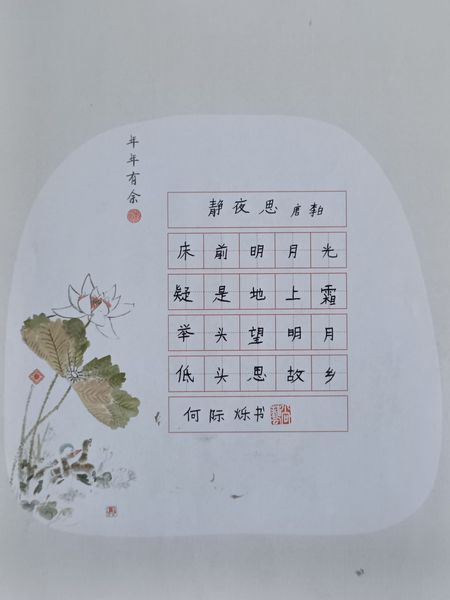 年年有余
静夜思 唐 李白
床前明月光
疑是地上霜
举头望明月
低头思故乡
何际烁书